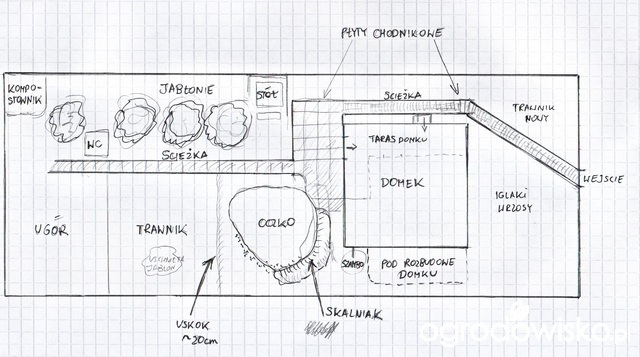 PŁYTY CHODNIKOWE
KOMPO-
STOWNIK
JABŁONIE
STÓŁ
ŚCIEŻKA
TRAWNIK
NOWY
TARAS DOMKU
WC
ŚCIEŻKA
DOMEK
WEJŚCIE
IGLAKI
WRZOSY
UGÓR
TRAWNIK
OCZKO
JABŁOŃ
SZAMBO
POD ROZBUDOWĘ
DOMKU
SKALNIAK
USKOK
~20cm
ogrodowisko.pl